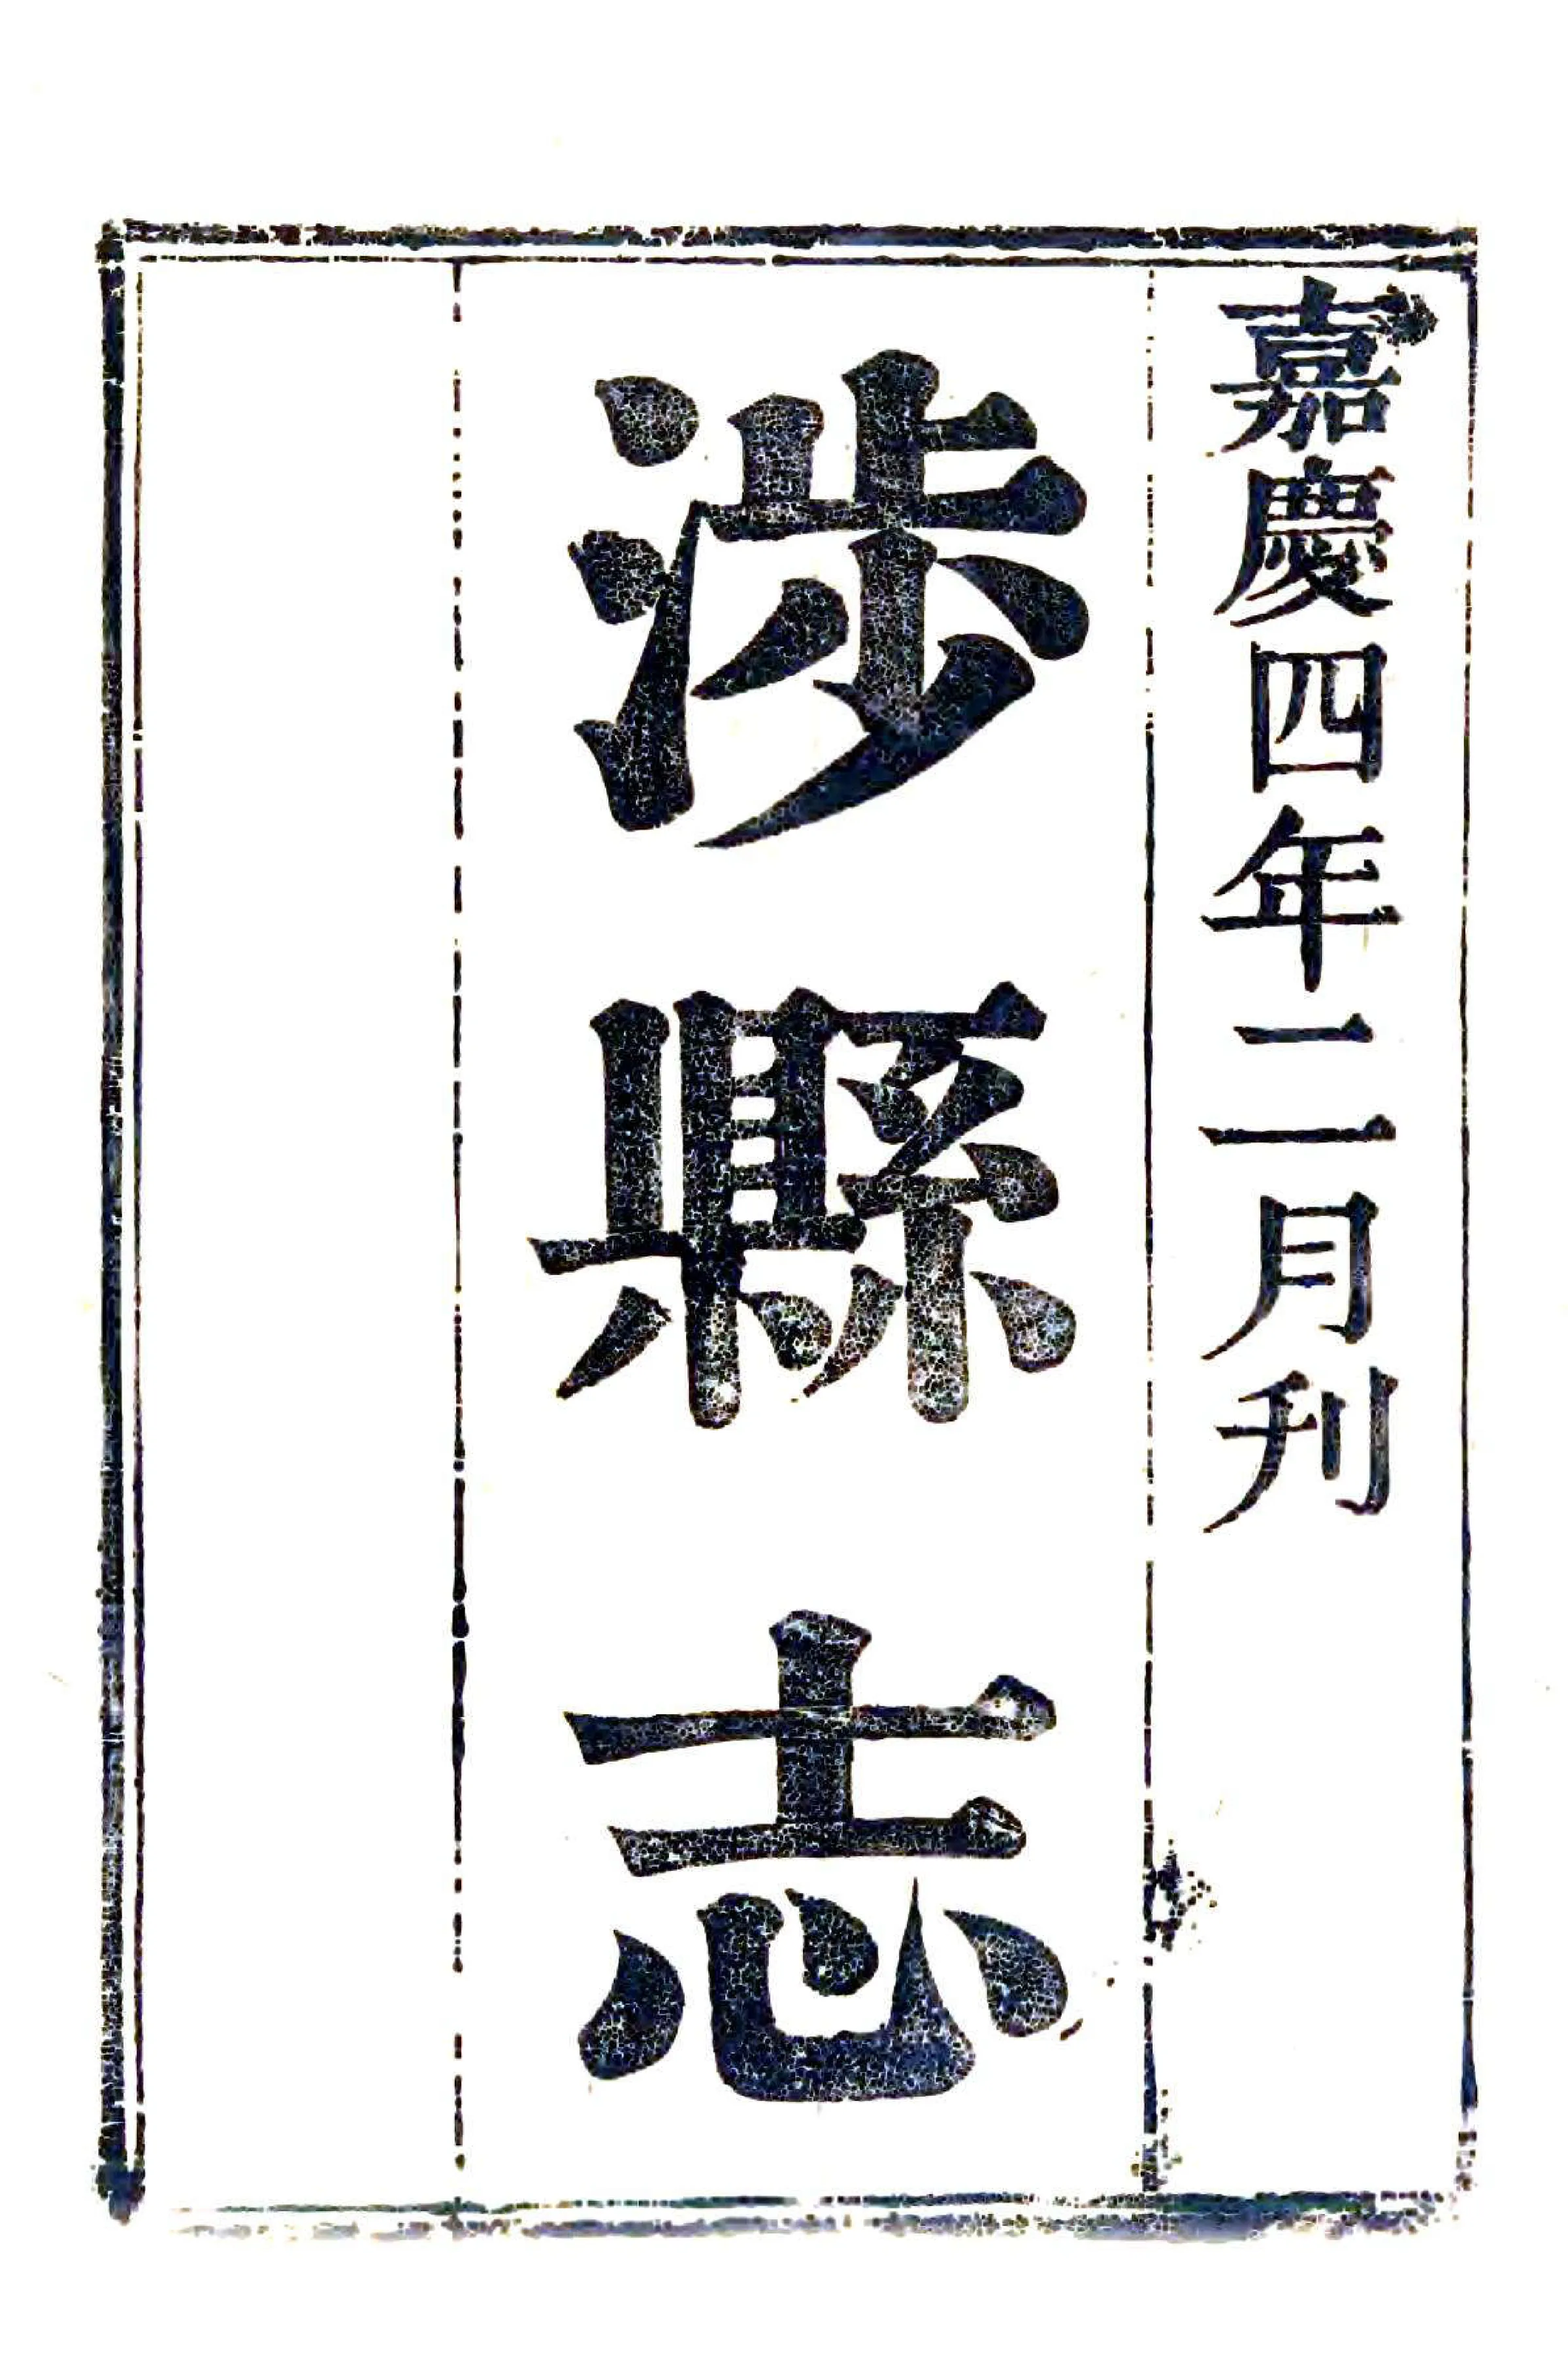 嘉慶四年二月刊
涉縣志